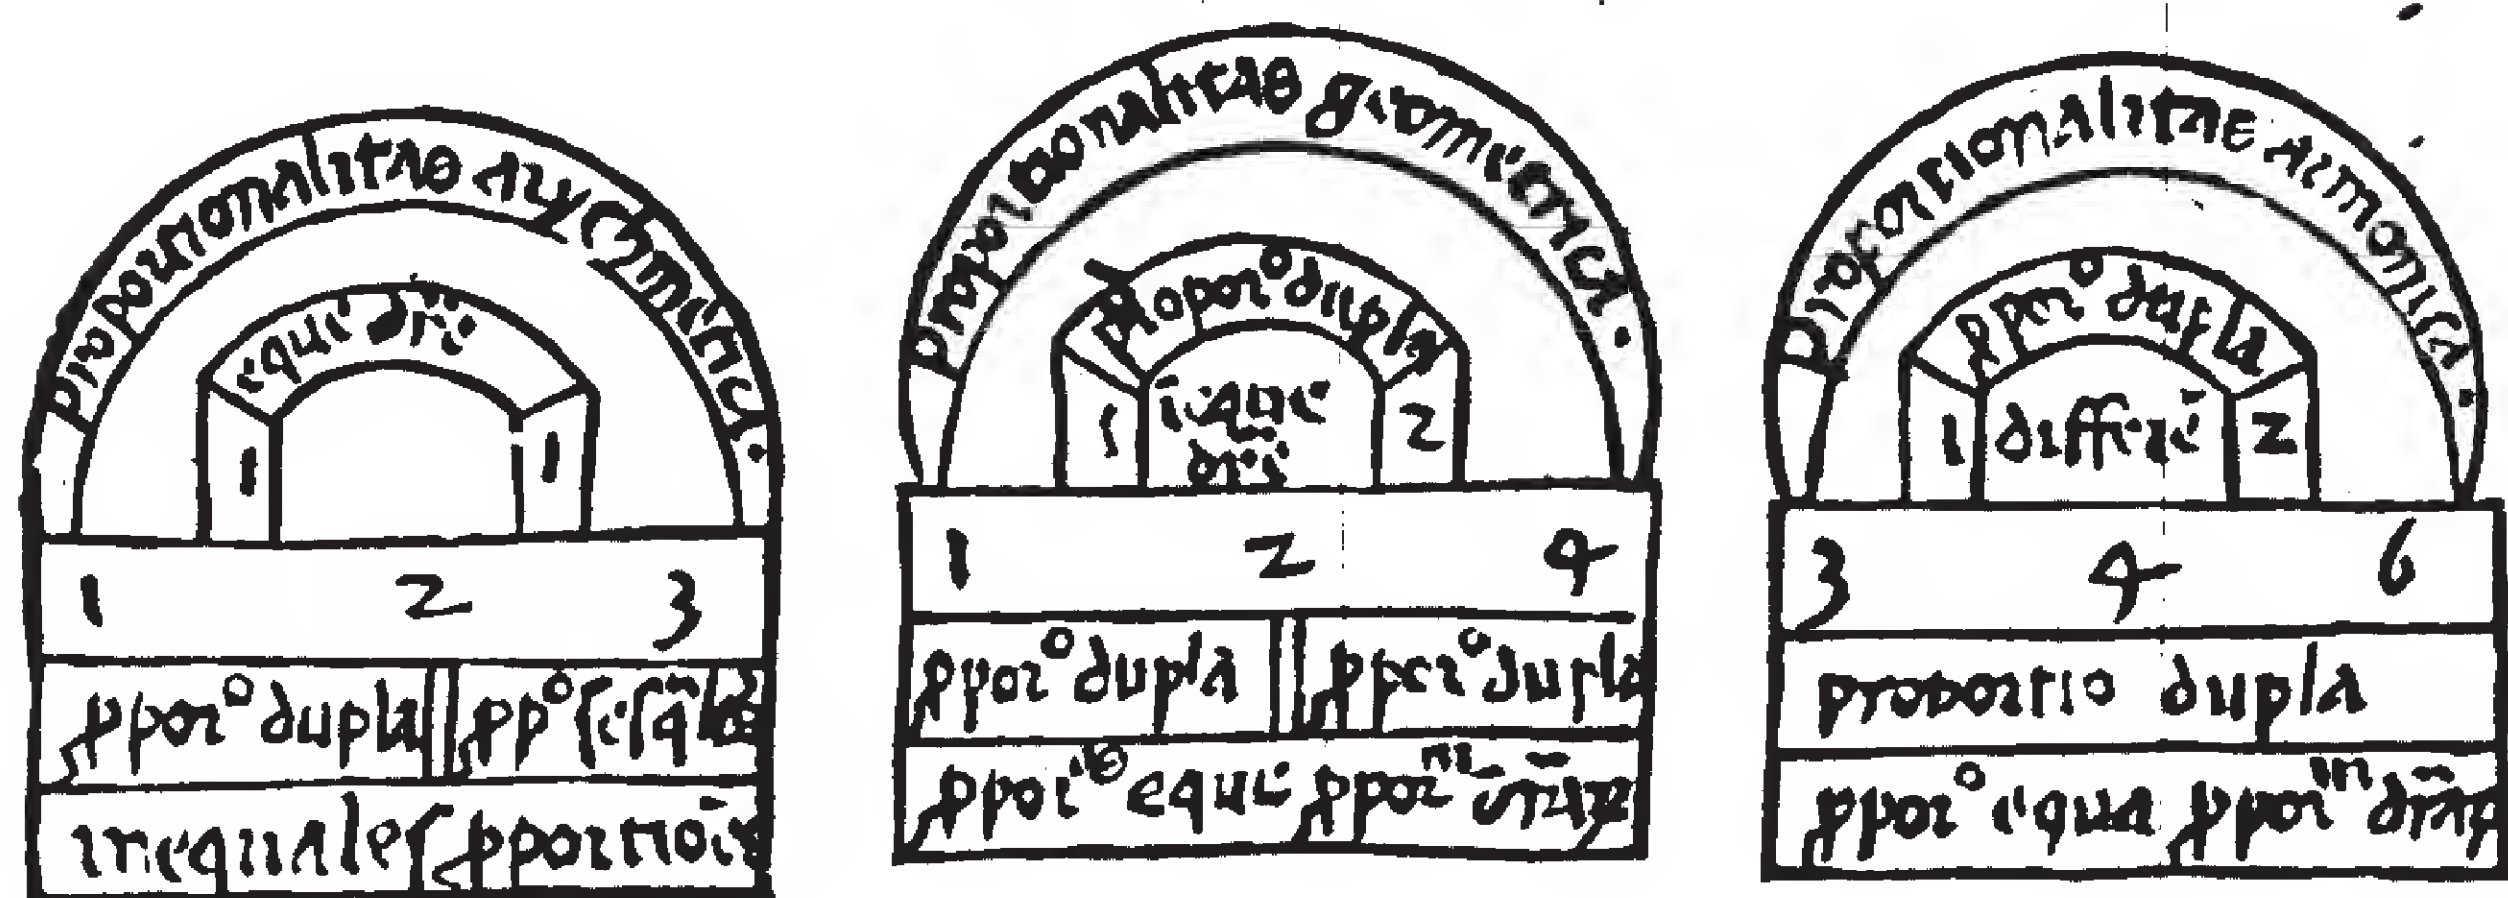 proportionalitas arithmetica.
eque drē
1 1
1 2 3
ꝓpor° dupla ꝓp° sesq̄l
inequales ꝓportiōēs
proportionalitas geometrica.
propor° dupla
1 ieque 2
drē
1 2 4
ꝓpor° dupla ꝓpor° dupla
eque
proporcionalitas armonica.
ꝓpor° dupla
1 differē 2
3 4 6
proportio dupla
ꝓpor° equa ꝓporᵐ